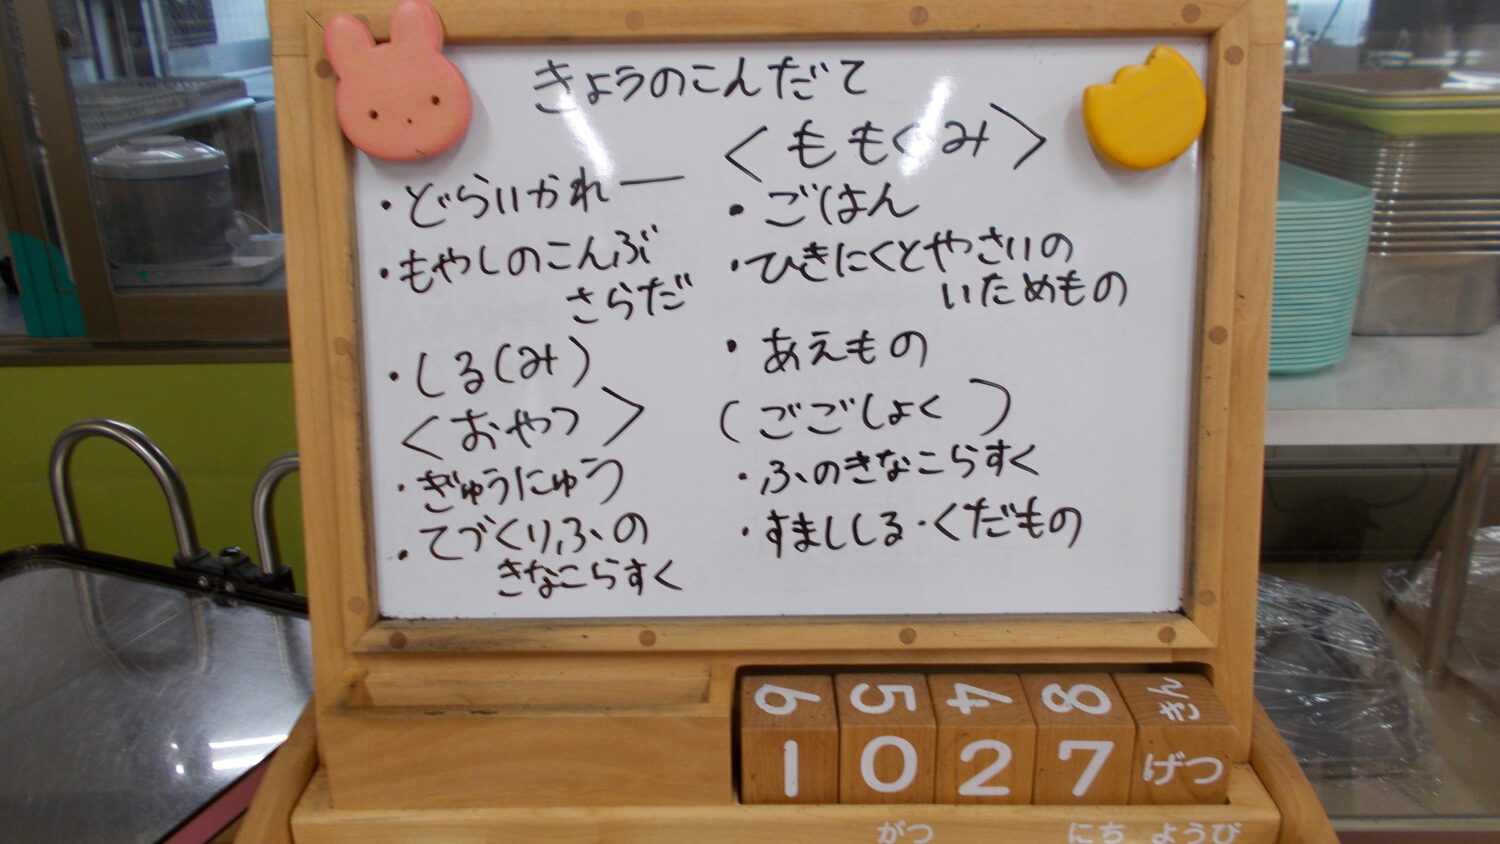 きょうのこんだて
・どらいかれー
・もやしのこんぶ
さらだ
・しる(み)
<おやつ>
・ぎゅうにゅう
・てづくりふの
きなこらすく
<ももぐみ>
・ごはん
・ひきにくとやさいの
いためもの
・あえもの
(ごごしょく)
・ふのきなこらすく
・すましじる・くだもの
6 5 4 8 きん
1 0 2 7 げつ
がつ にち ようび